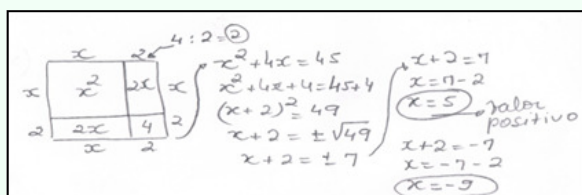 x 2 4 : 2 = 2
x x² 2x x
2 2x 4 2
x 2
x² + 4x = 45
x² + 4x + 4 = 45 + 4
(x + 2)² = 49
x + 2 = ± √49
x + 2 = ± 7
x + 2 = 7
x = 7 - 2
x = 5
valor
positivo
x + 2 = -7
x = -7 - 2
x = -9